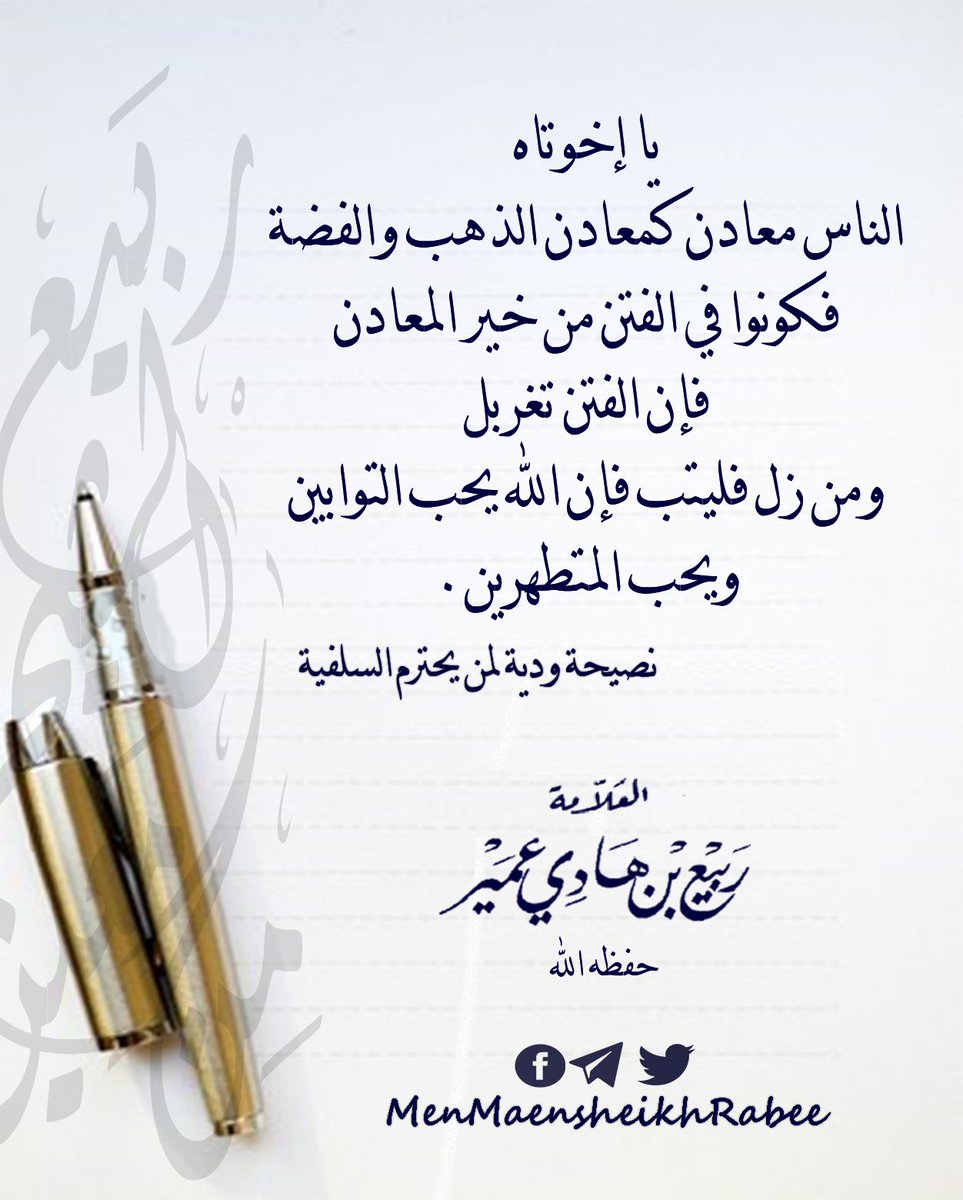 يا إخوتاه
الناس معادن كمعادن الذهب والفضة
فكونوا في الفتن من خير المعادن
فإن الفتن تغربل
ومن زل فليتب فإن الله يحب التوابين
ويحب المتطهرين .
نصيحة ودية لمن يحترم السلفية
العَلاّمة
رَبِيْع بْن هَادِي عمَيْر
حفظه الله
MenMaensheikhRabee